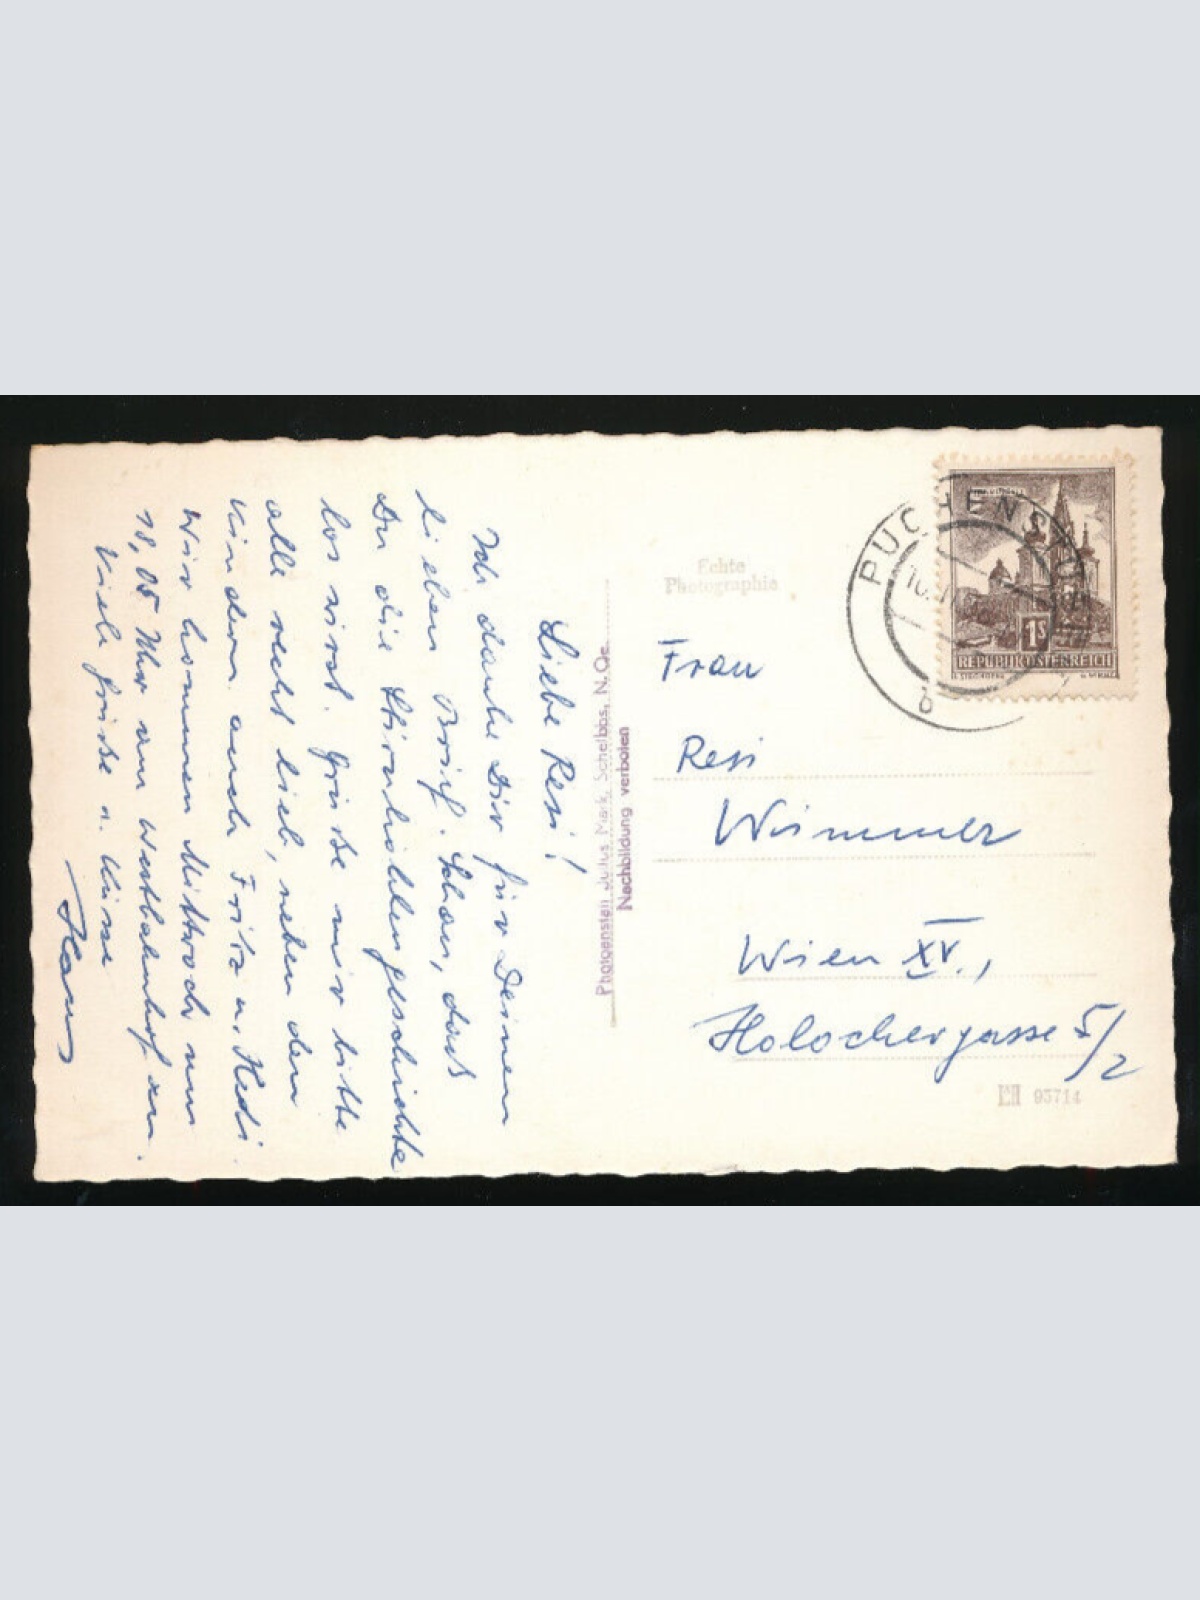 Liebe Resi!
Ich danke Dir für Deinen
lieben Brief. Schau, daß
Du die Stirnhöhlengeschichte
los wirst. Grüße mir bitte
alle recht lieb, neben den
Kindern auch Fritz u. Hedi.
Wir kommen Mittwoch um
18,05 Uhr am Westbahnhof an.
Viele Grüße u. Küsse
Hans
Photoanstalt Julius Mark, Scheibbs, N.Oe.
Nachbildung verboten
Echte
Photographie
PUCHENSTU
b
1S
REPUBLIK ÖSTERREICH
Frau
Resi
Wimmer
Wien XV.,
Holochergasse 5/2
93714